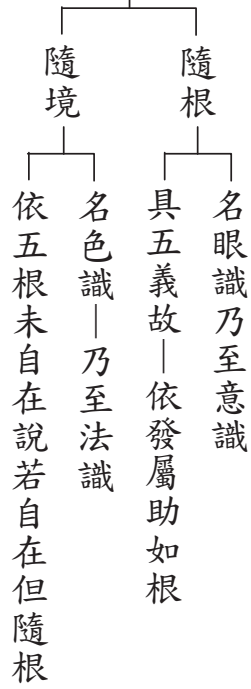 隨根
名眼識乃至意識
具五義故—依發屬助如根
隨境
名色識—乃至法識
依五根未自在說若自在但隨根